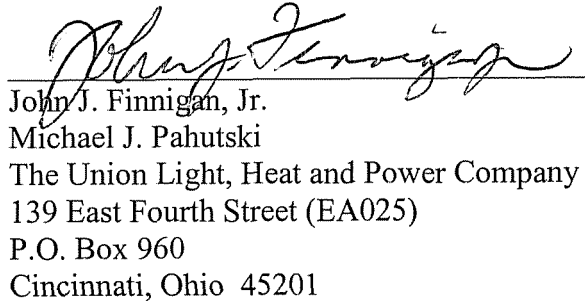 John J. Finnigan, Jr.
John J. Finnigan, Jr.
Michael J. Pahutski
The Union Light, Heat and Power Company
139 East Fourth Street (EA025)
P.O. Box 960
Cincinnati, Ohio 45201